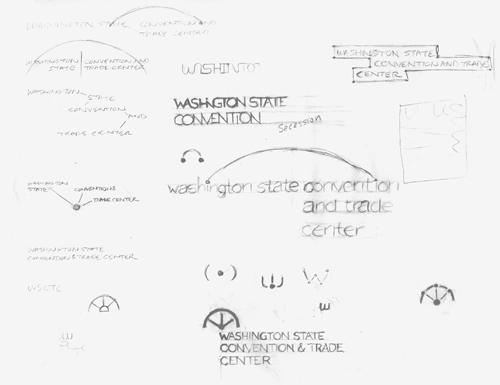 WASHINGTON STATE CONVENTION AND
TRADE CENTER
WASHINGTON
STATE
CONVENTION AND
TRADE CENTER
WASHINGTON STATE
CONVENTION AND TRADE
CENTER
WASHINGTON
STATE
CONVENTION
AND
TRADE CENTER
WASHINGTON STATE
CONVENTION
Secession
WASHINGTON
STATE
CONVENTIONS
TRADE CENTER
washington state convention
and trade
center
WASHINGTON STATE
CONVENTION & TRADE CENTER
WSCTC
W
W
WASHINGTON STATE
CONVENTION & TRADE
CENTER